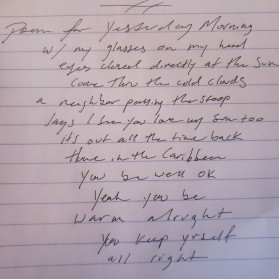 Poem for Yesterday Morning
w/ my glasses on my head
eyes closed directly at the Sun
come thru the cold clouds
a neighbor passing the stoop
says I see you love my sun too
it's out all the time back
there in the Caribbean
You be well ok
Yeah you be
warm alright
You keep yrself
all right